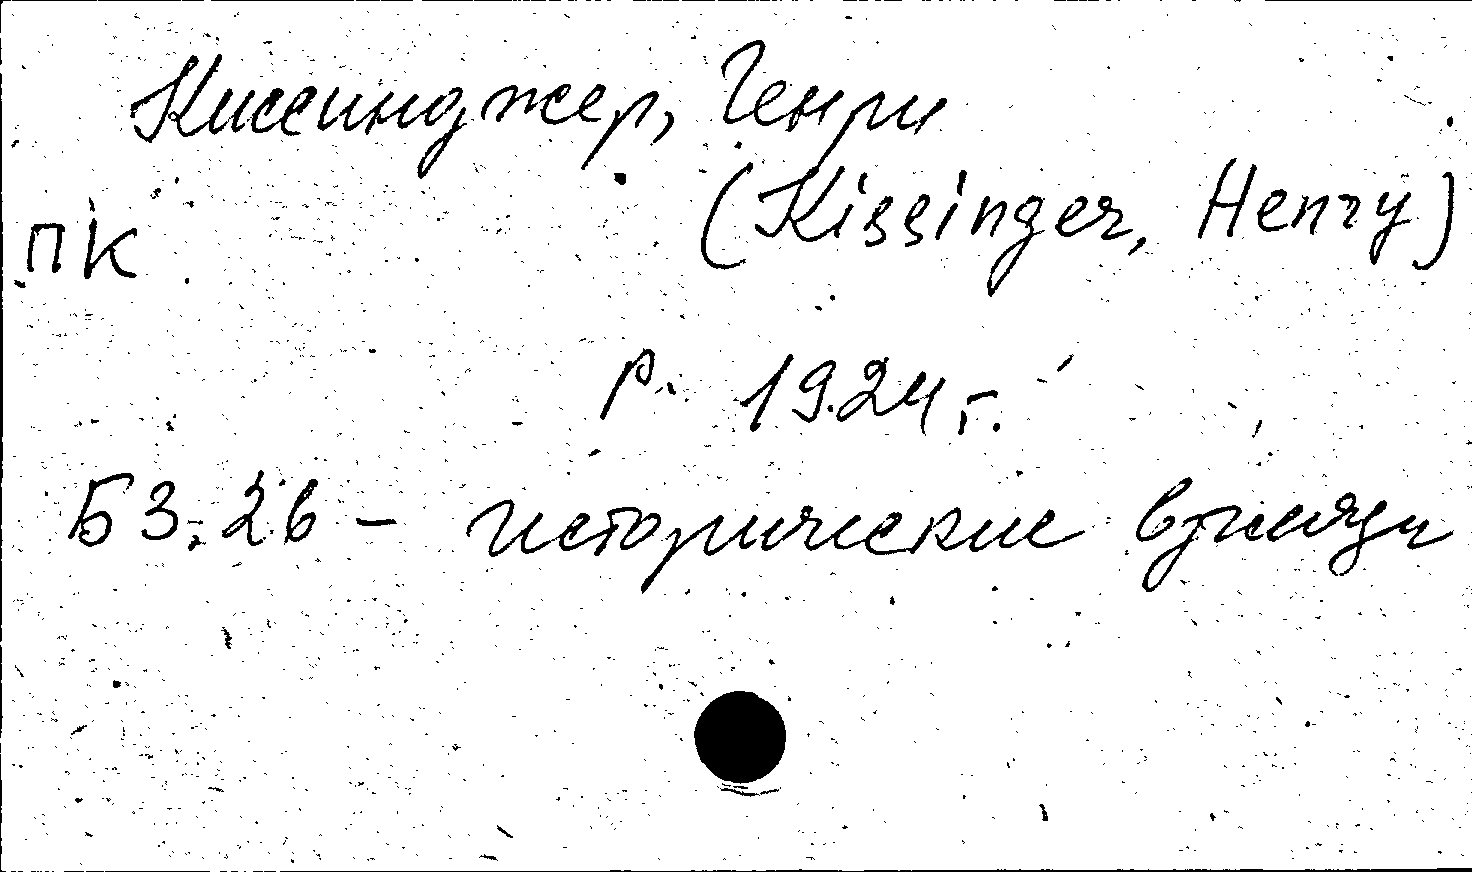 Киссинджер, Генри
(Kissinger, Henry)
ПК
р. 1924 г.
Б3.26 - исторические взгляды